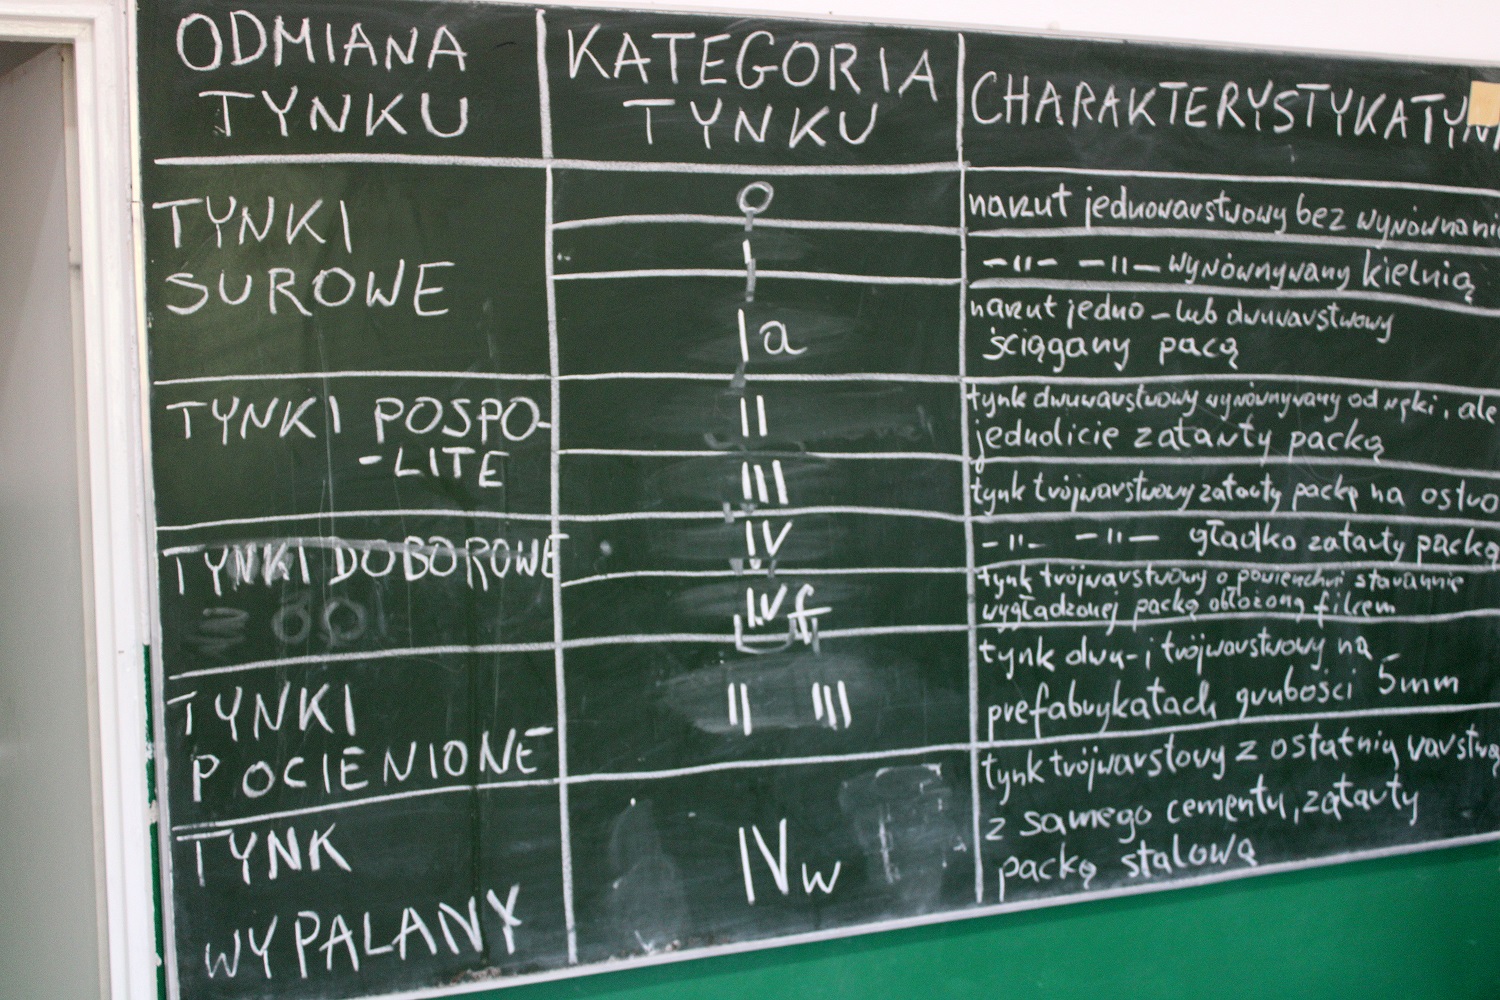 ODMIANA
TYNKU
KATEGORIA
TYNKU
CHARAKTERYSTYKA TYN
TYNKI
SUROWE
O
narzut jednowarstwowy bez wyrównani
I
-"- -"- wyrównywany kielnią
Ia
narzut jedno-lub dwuwarstwowy
ściągany pacą
TYNKI POSPO-
-LITE
II
tynk dwuwarstwowy wyrównywany od ręki, ale
jednolicie zatarty packą
III
tynk trójwarstwowy zatarty packą na ostro
TYNKI DOBOROWE
IV
-"- -"- gładko zatarty packą
IVf
tynk trójwarstwowy o powierzchni starannie
wygładzonej packą obłożoną filcem
TYNKI
POCIENIONE
II III
tynk dwu-i trójwarstwowy na
prefabrykatach grubości 5mm
TYNK
WYPALANY
IVw
tynk trójwarstowy z ostatnią warstwą
z samego cementu, zatarty
packą stalową